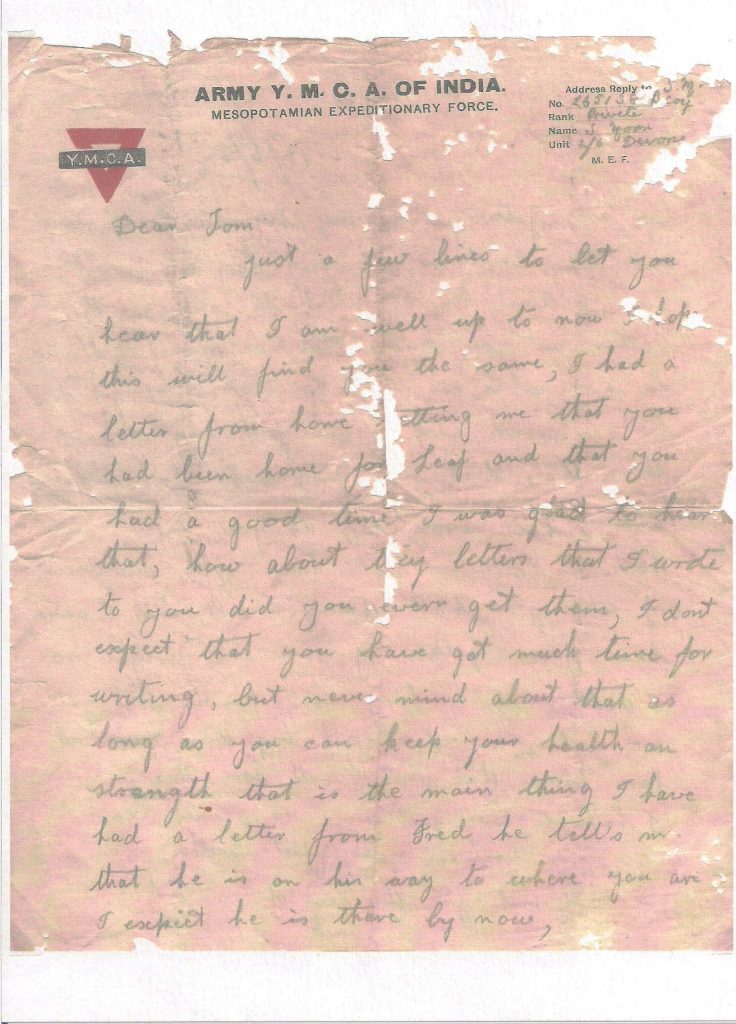 ARMY Y. M. C. A. OF INDIA.
MESOPOTAMIAN EXPEDITIONARY FORCE.
Y.M.C.A.
Address Reply to
No. 265138 D Coy
Rank Private
Name S
Unit 2/6 Devons
M. E. F.
Dear Tom
just a few lines to let you
hear that I am well up to now I hop
this will find you the same, I had a
letter from home etting me that you
had been home for Leaf and that you
had a good time I was glad to hear
that, how about they letters that I wrote
to you did you evern get them, I dont
expect that you have got much time for
writing, but never mind about that as
long as you can keep your health an
strength that is the main thing I have
had a letter from Fred he tells m
that he is on his way to where you are
I expect he is there by now,